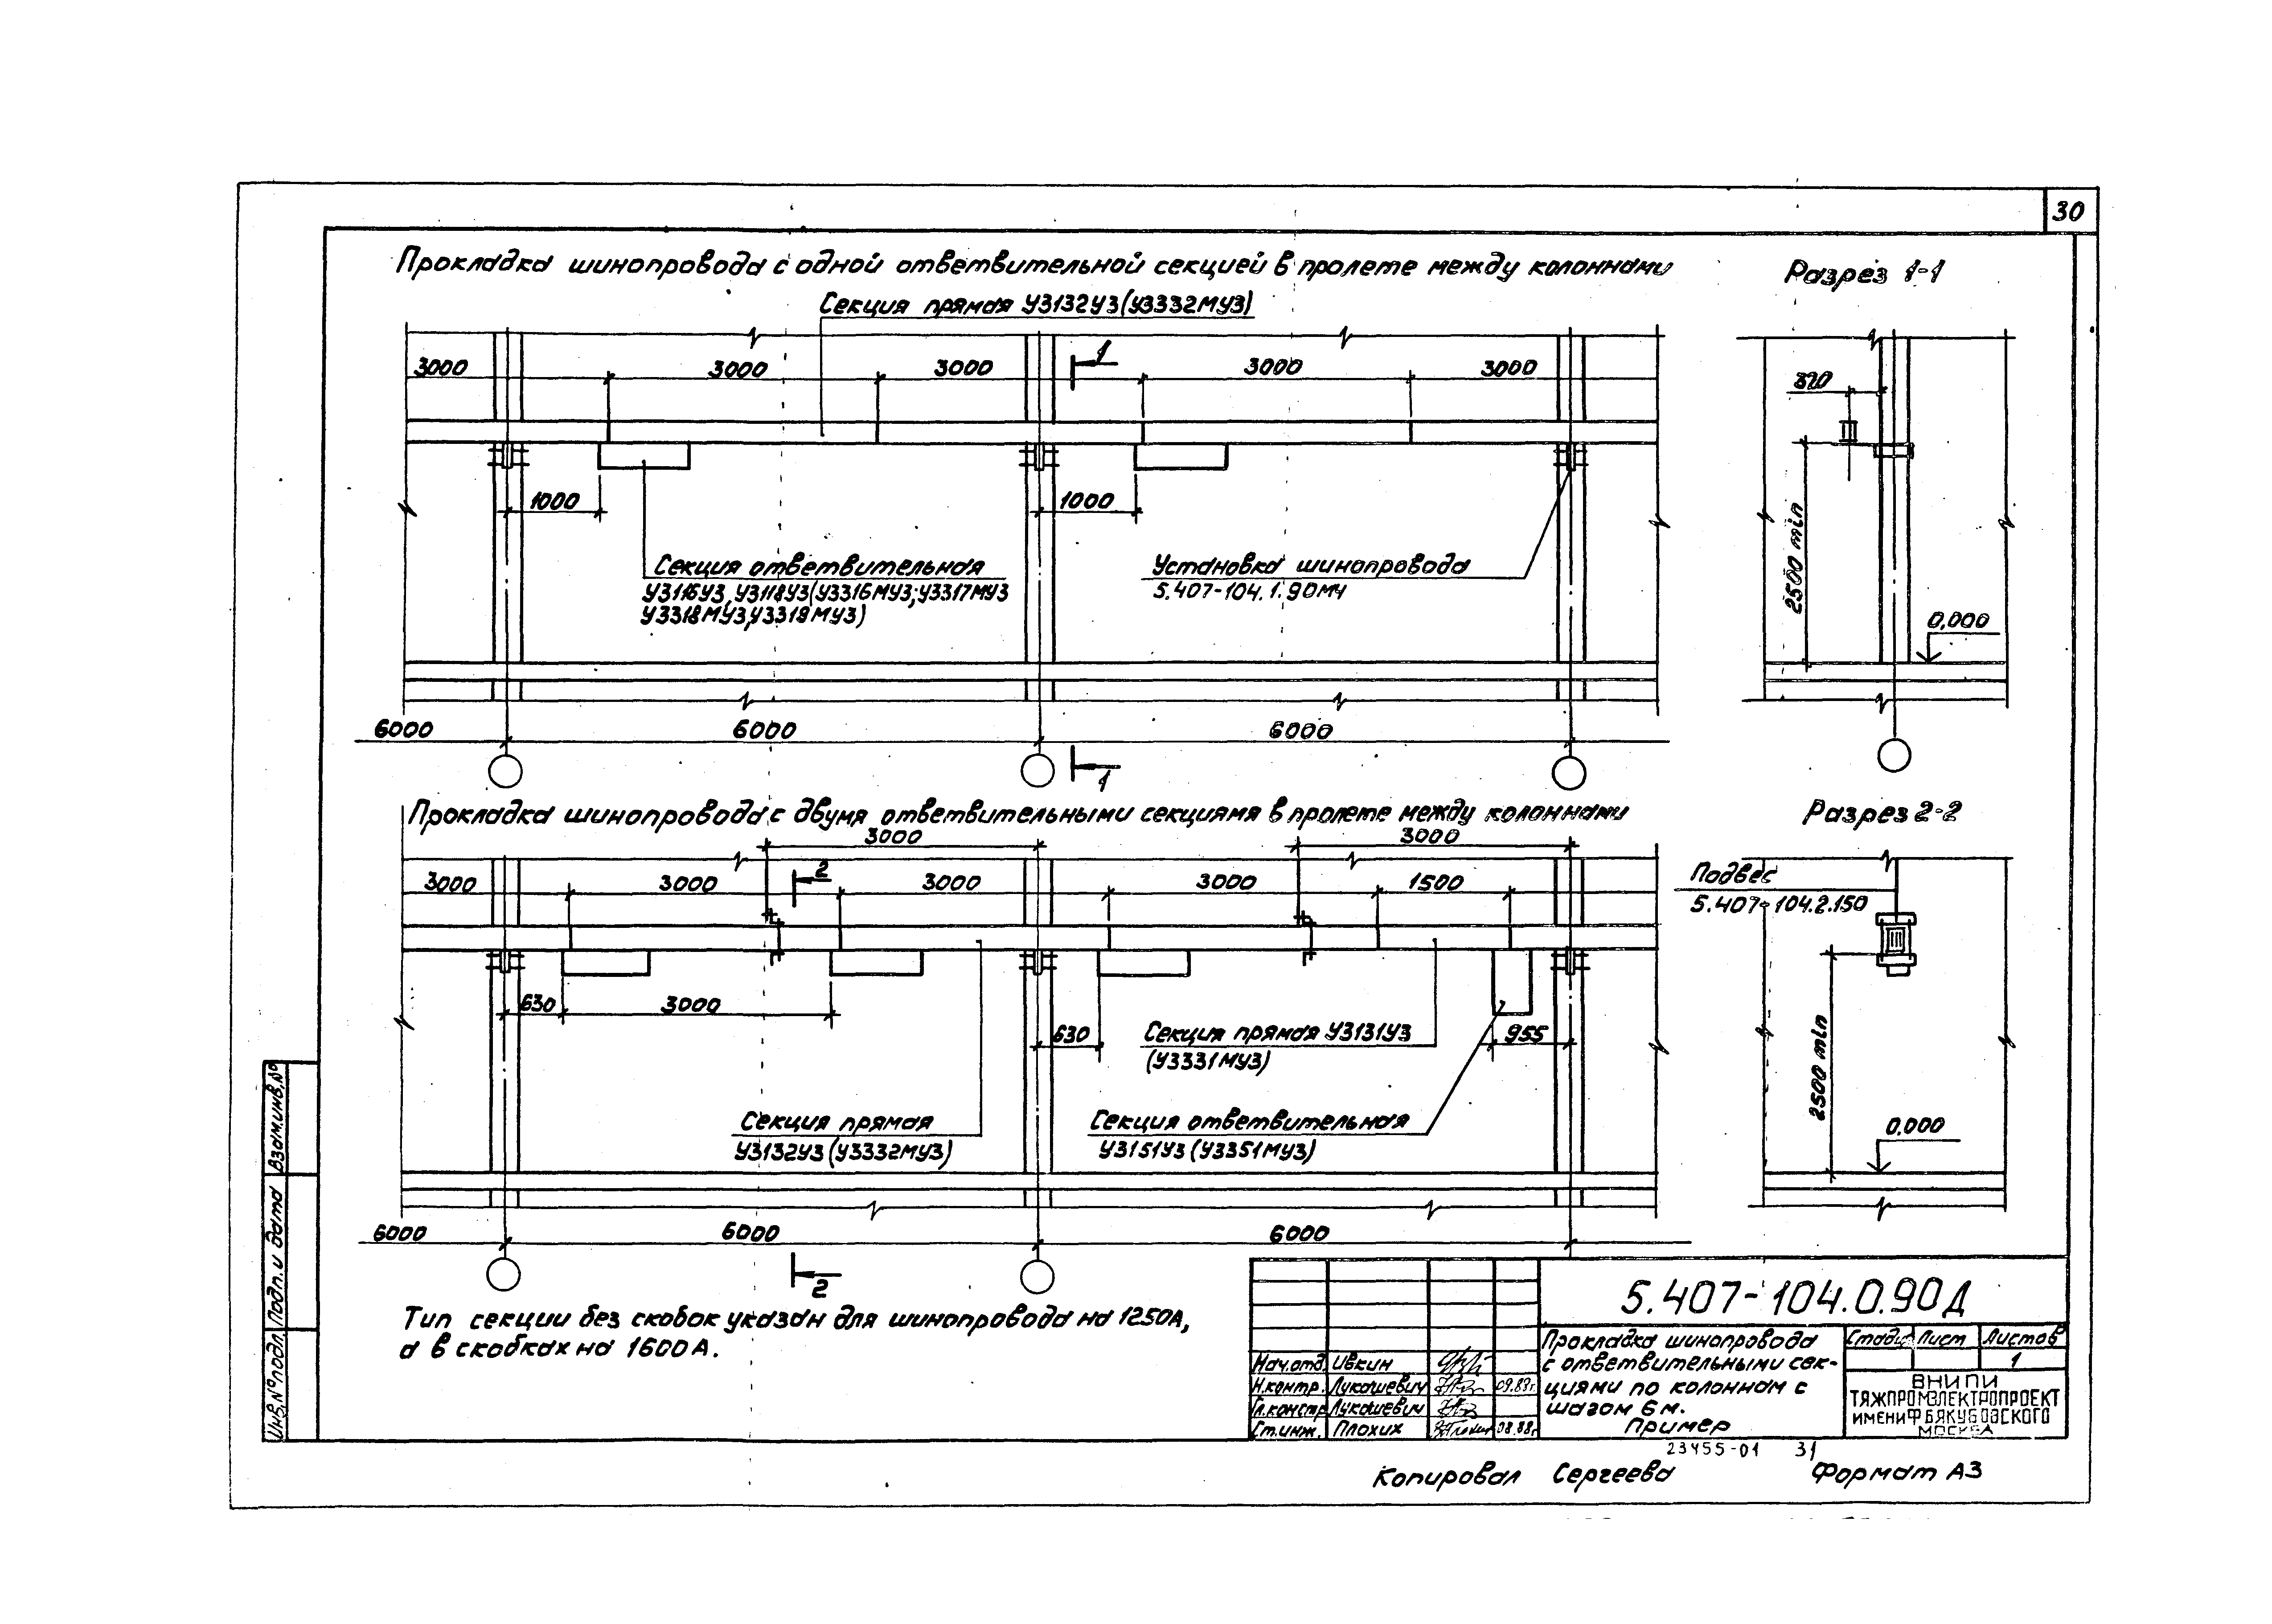 30
Прокладка шинопровода с одной ответвительной секцией в пролете между колоннами
Разрез 1-1
Секция прямая У3132У3(У3332МУ3)
3000 3000 3000 1 3000 3000
320
1000 1000
2500 min
Секция ответвительная
У3116У3, У3118У3(У3316МУ3;У3317МУ3
У3318МУ3;У3319МУ3)
Установка шинопровода
5.407-104.1.90МЧ
0,000
6000 6000 6000
1
Прокладка шинопровода с двумя ответвительными секциями в пролете между колоннами
Разрез 2-2
3000 3000
3000 3000 2 3000 3000 1500
Подвес
5.407-104.2.150
630 3000
630
Секция прямая У3131У3
(У3331МУ3)
955
2500 min
Секция прямая
У3132У3 (У3332МУ3)
Секция ответвительная
У3151У3 (У3351МУ3)
0,000
6000 6000 6000
2
Тип секции без скобок указан для шинопровода на 1250А,
а в скобках на 1600А.
Взам.инв.№
Подп. и дата
Инв.№ подл.
5.407-104.0.90Д
Прокладка шинопровода
с ответвительными сек-
циями по колоннам с
шагом 6 м.
Пример
Стадия Лист Листов
1
ВНИПИ
ТЯЖПРОМЭЛЕКТРОПРОЕКТ
ИМЕНИ Ф.Б.ЯКУБОВСКОГО
МОСКВА
Нач.отд. Ивкин
Н.контр. Лукашевич 09.88г.
Гл.констр. Лукашевич
Ст.инж. Плохих 08.88г.
23455-01 31
Копировал Сергеева Формат А3